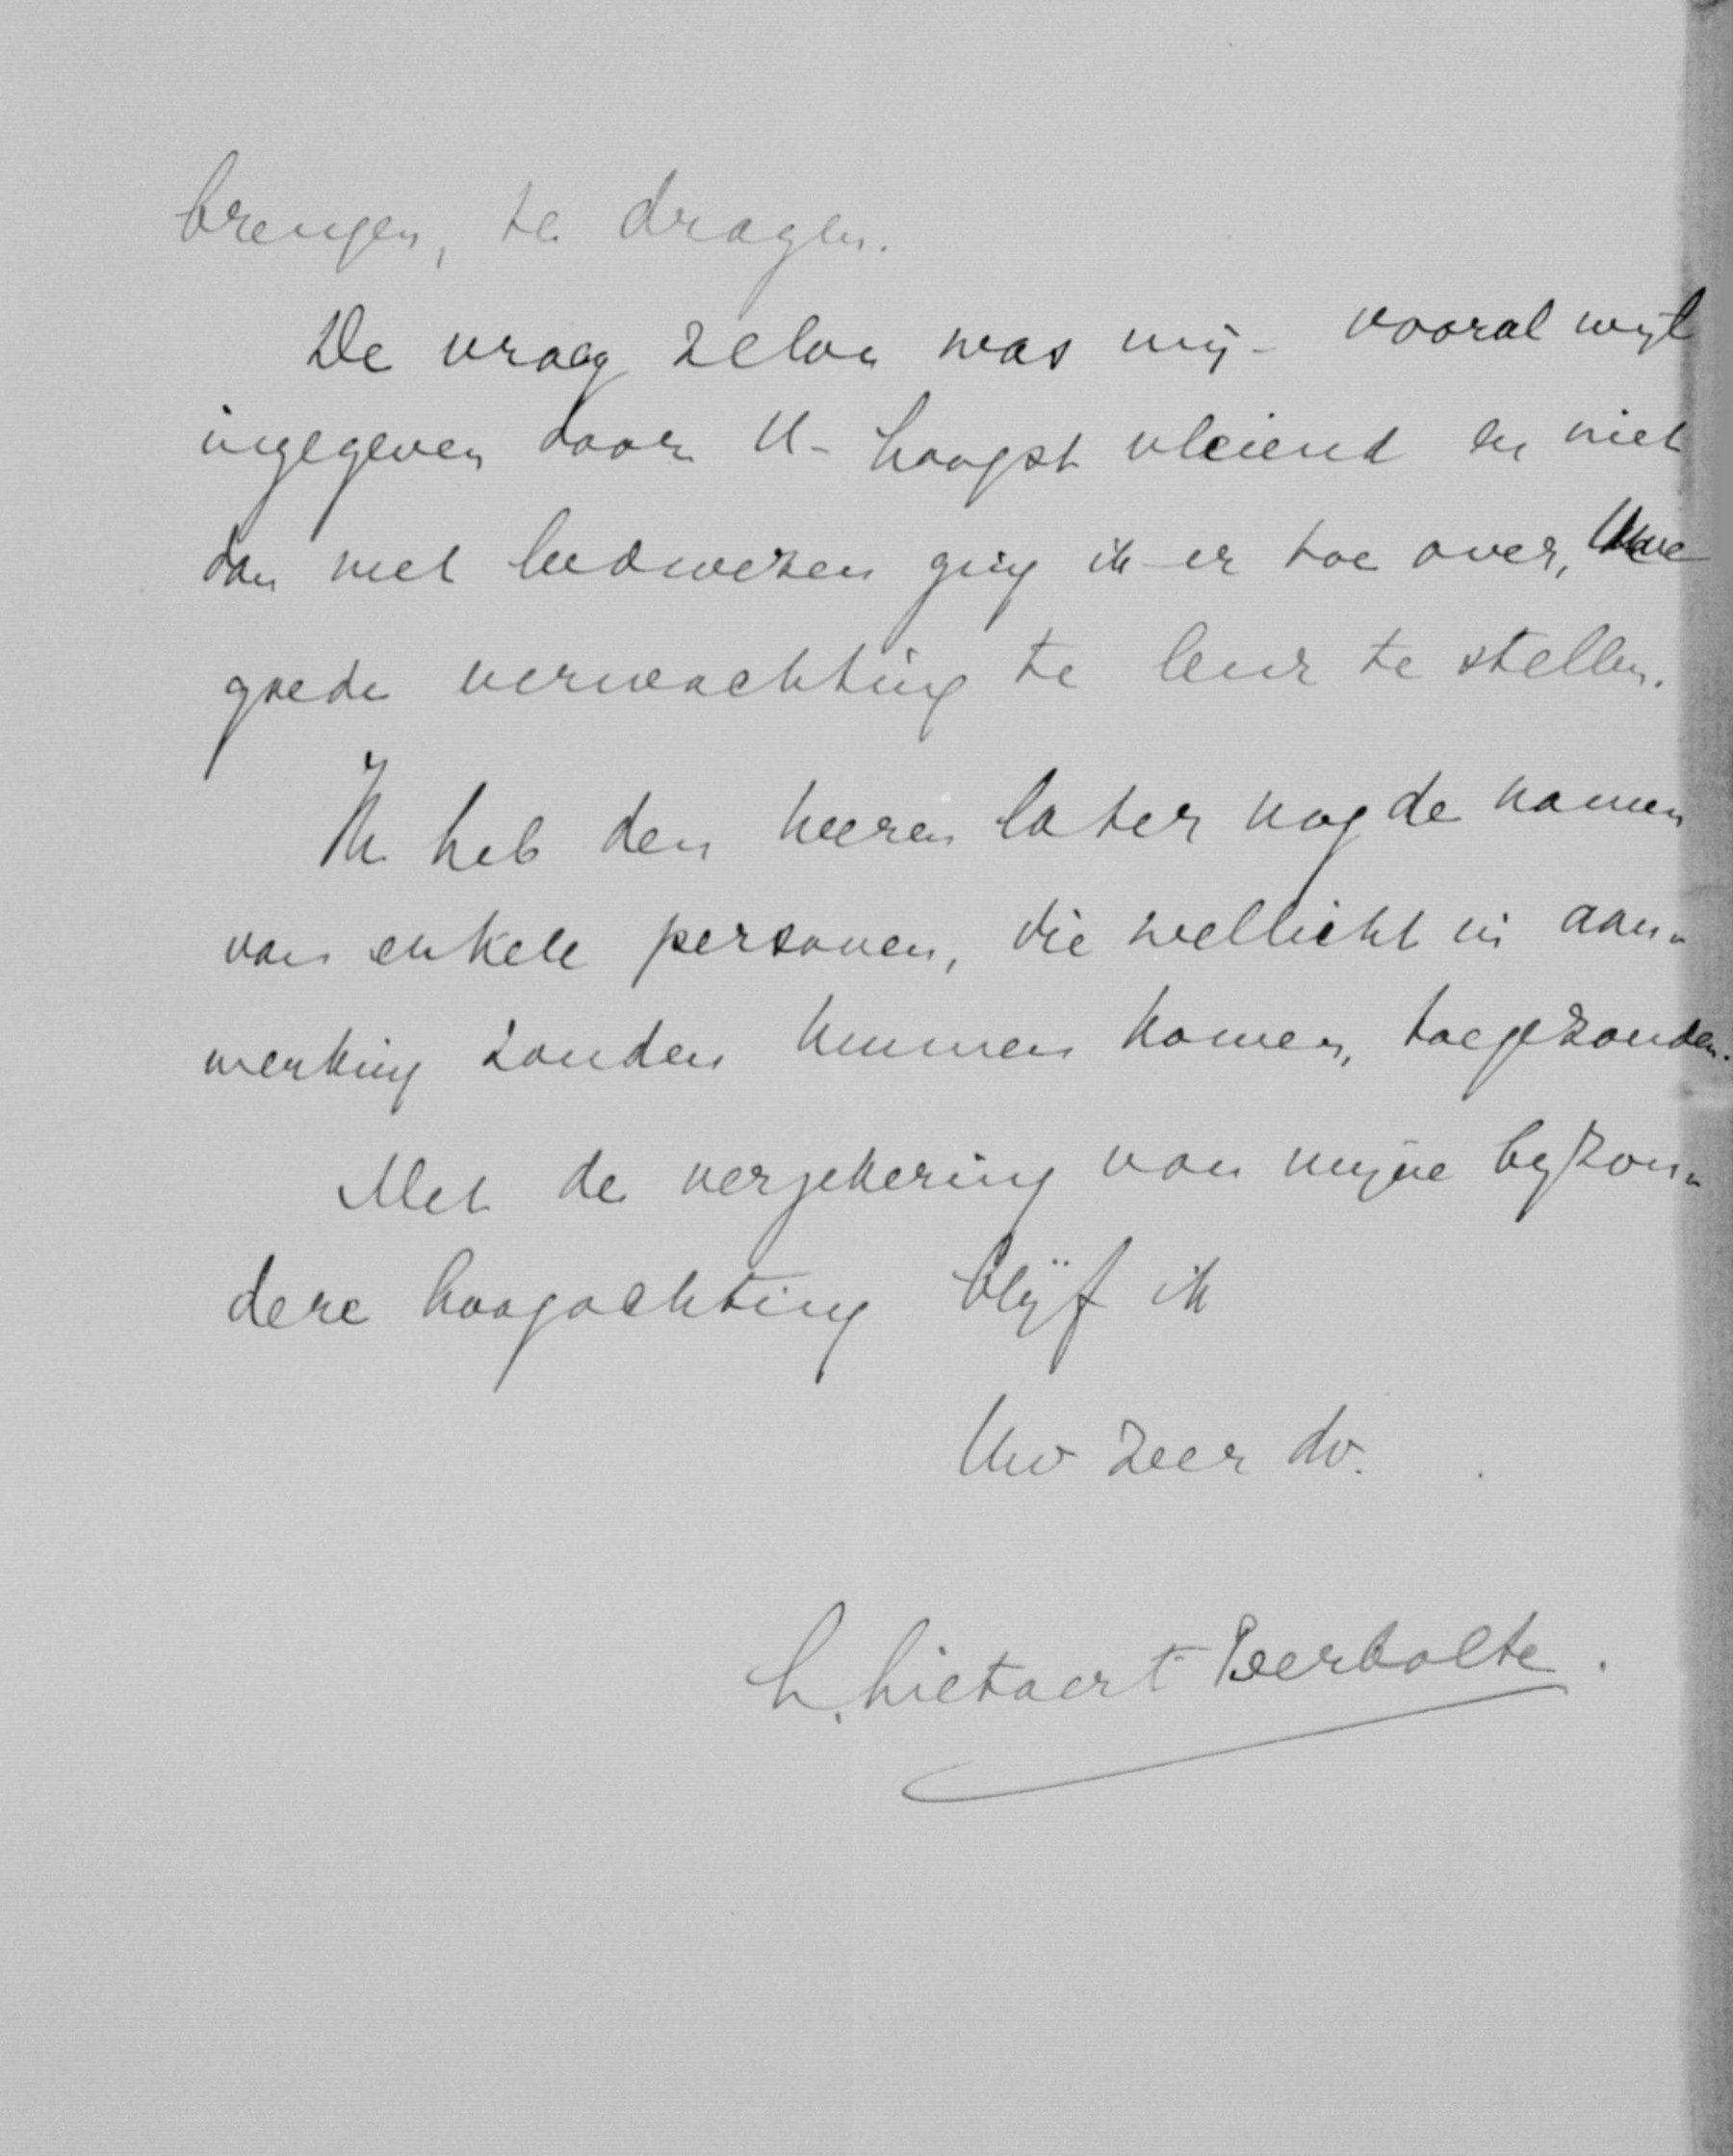 brengen, te dragen.
De vraag zelve was mij - vooral wijl
ingegeven door U - hoogst vleiend en niet
dan met leedwezen ging ik er toe over, Uwe
goede verwachting te leur te stellen.
Ik heb den heeren later nog de namen
van enkele personen, die wellicht in aan-
merking zouden kunnen komen, toegezonden.
Met de verzekering van mijne byzon-
dere hoogachting blijf ik
Uw zeer dv.
L. Lietaert Peerbolte.